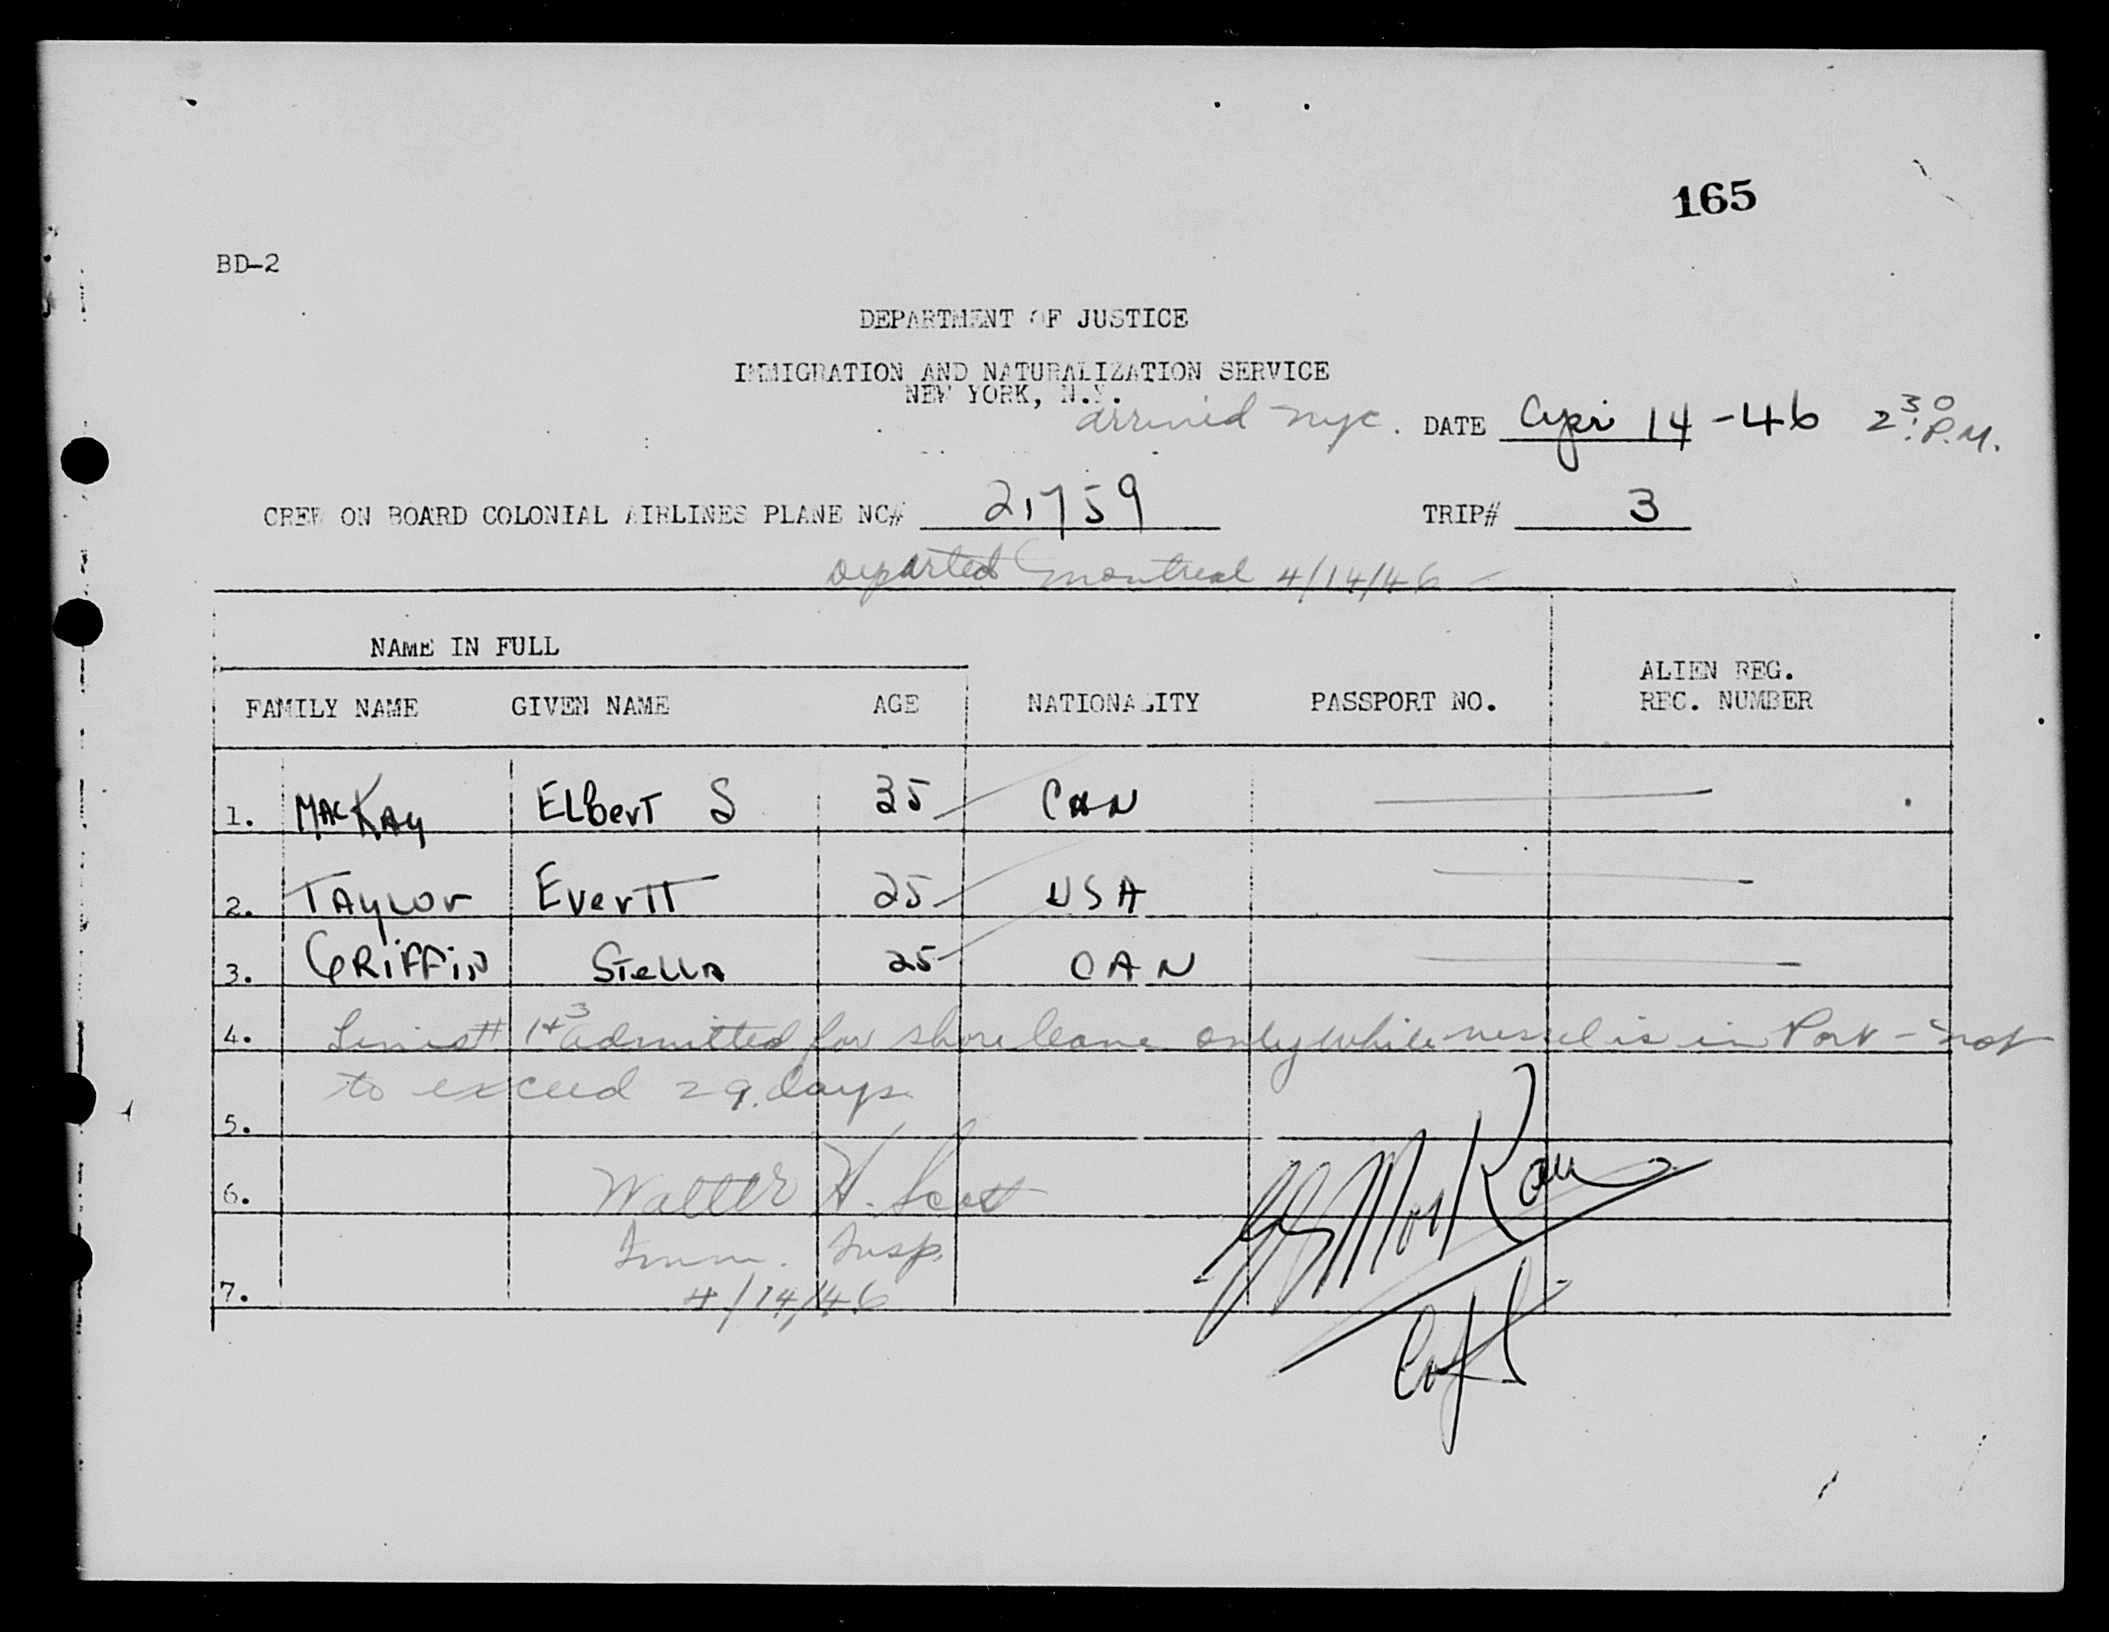 165
BD-2
DEPARTMENT OF JUSTICE
IMMIGRATION AND NATURALIZATION SERVICE
NEW YORK, N.Y.
arrived nyc. DATE Apri 14-46 2:30 P.M.
CREW ON BOARD COLONIAL AIRLINES PLANE NC# 21759 TRIP# 3
Departed Montreal 4/14/46 -
NAME IN FULL
FAMILY NAME GIVEN NAME AGE NATIONALITY PASSPORT NO. ALIEN REG. REC. NUMBER
1. MacKay ELBert S 35 CAN
2. TAYLor EverTT 25 USA
3. GRiFFiN STeLLA 25 CAN
4. Lines # 1+3 admitted for shore leave only while vessel is in Port - not
to exceed 29 days
5.
6. Walter H. Scott
Imm. Insp.
7. 4/14/46
MacKay
Capt